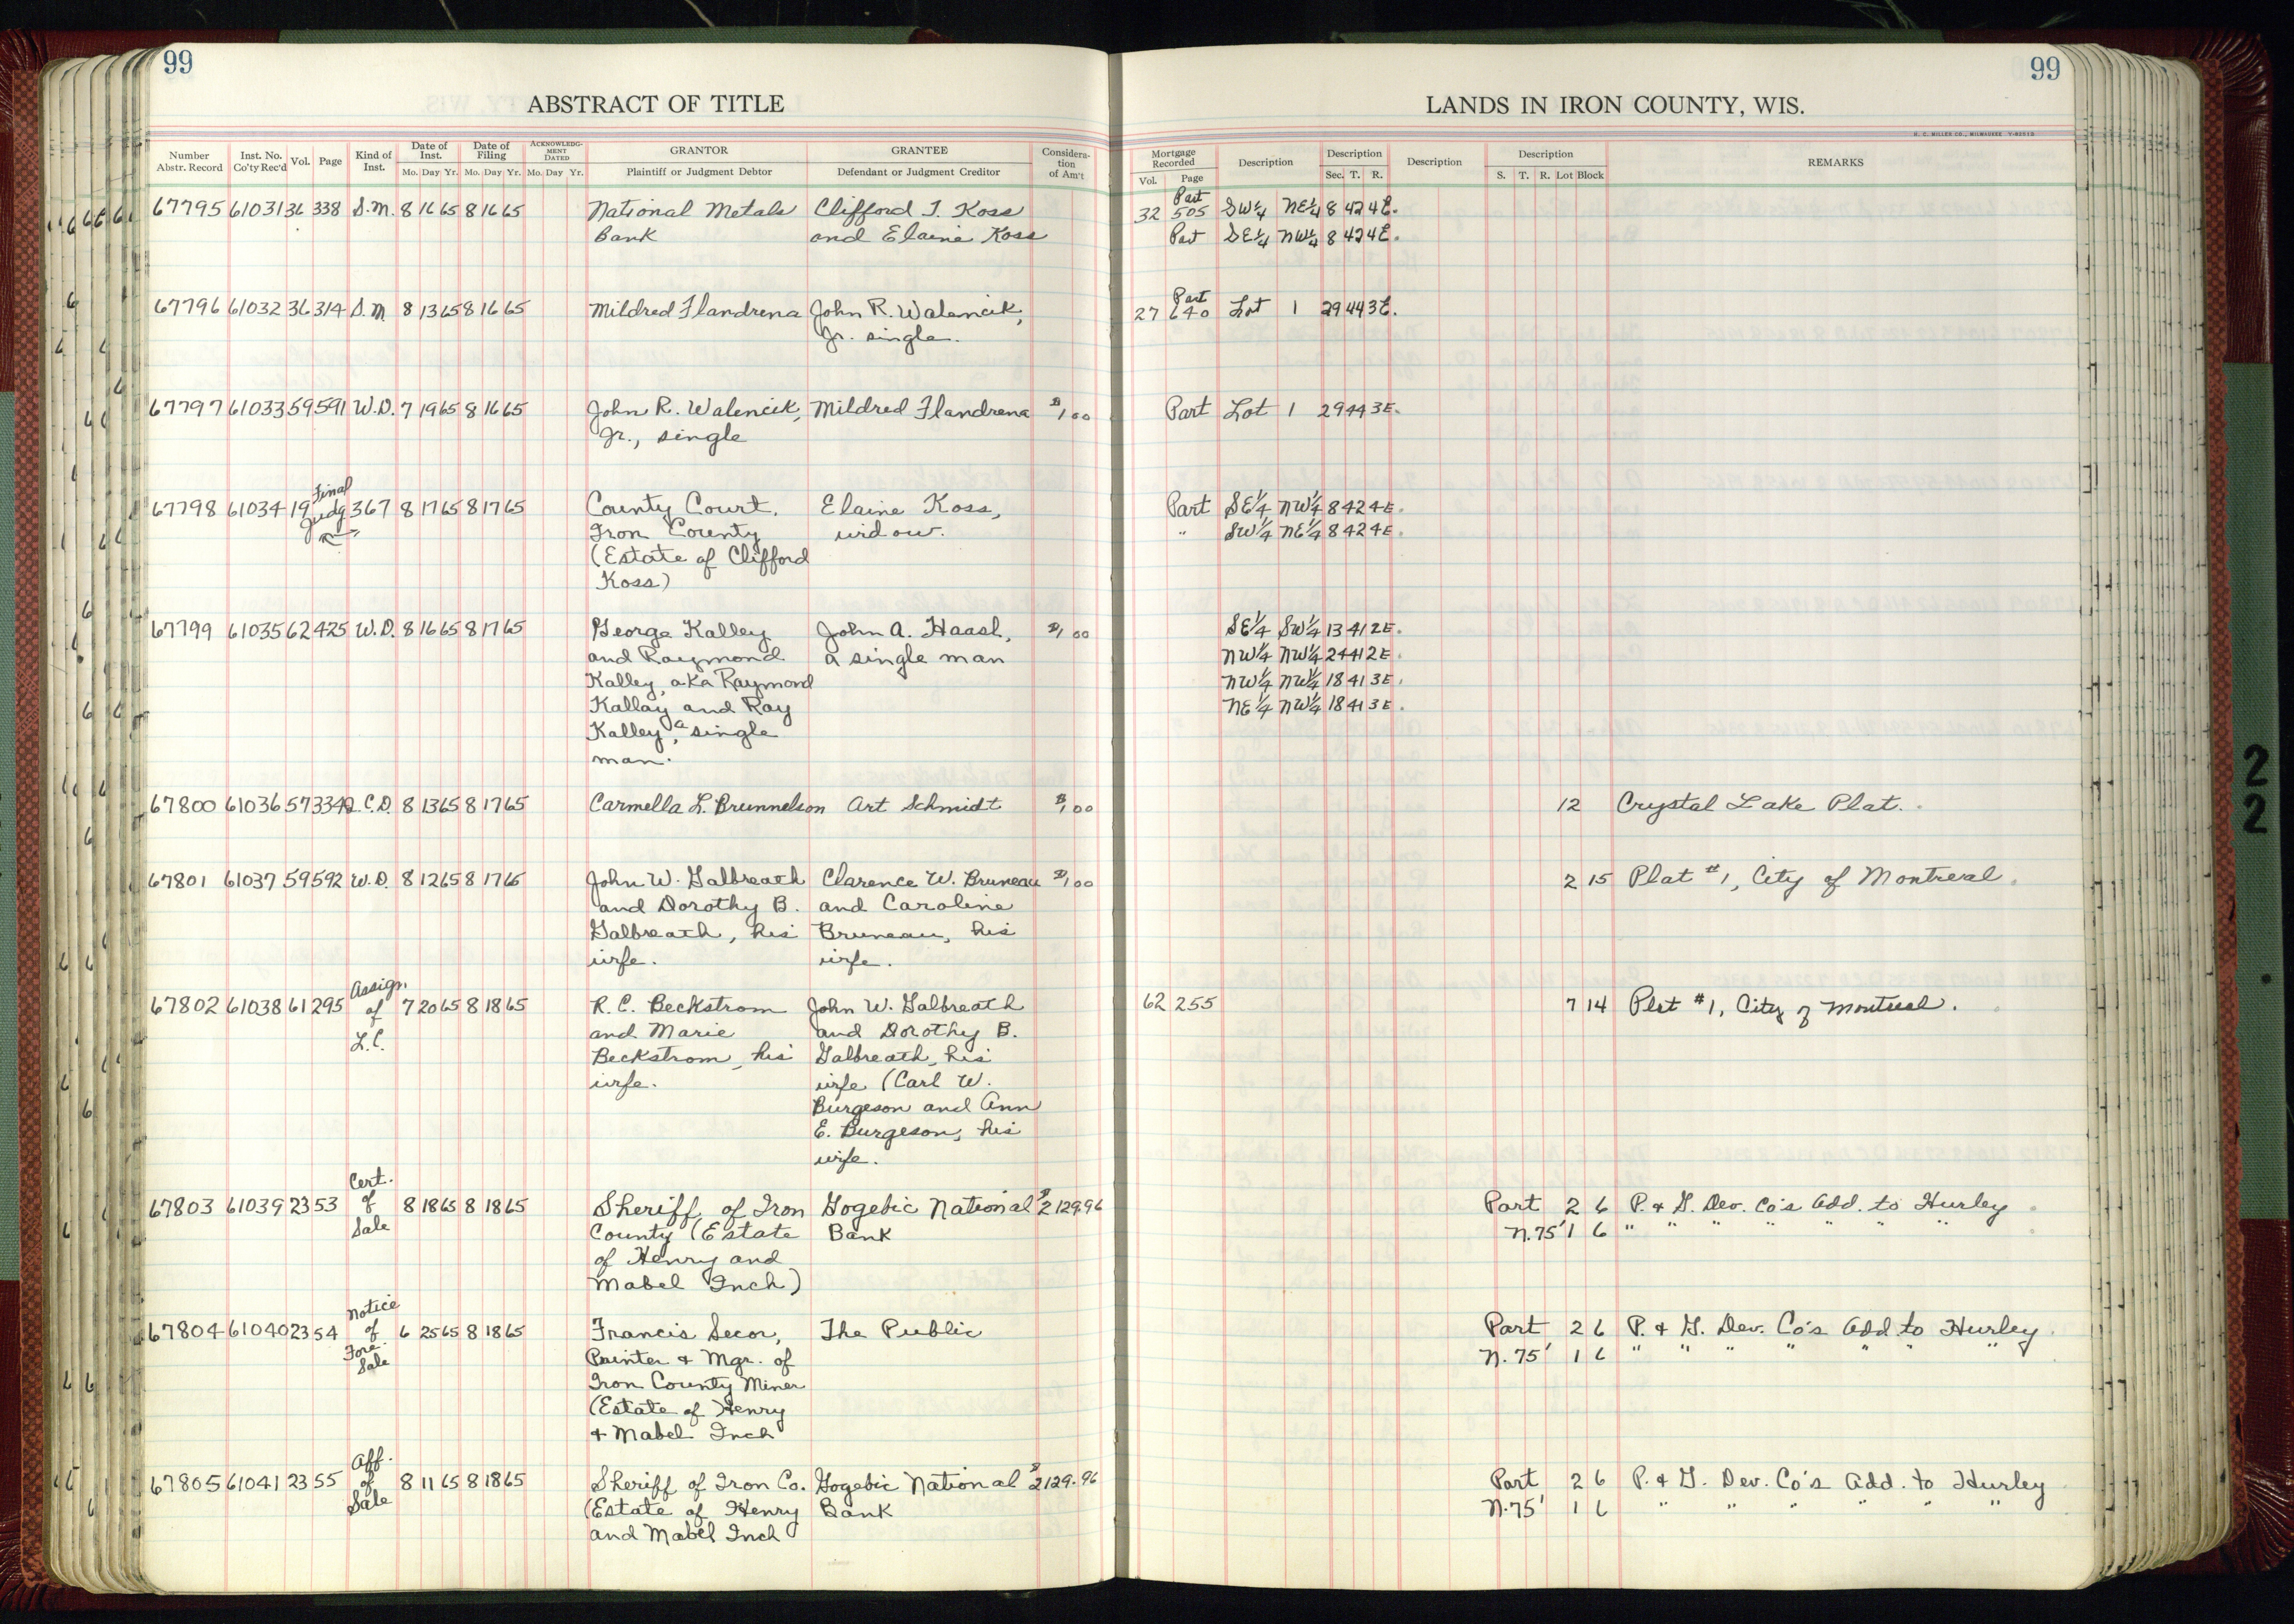 99
99
ABSTRACT OF TITLE
LANDS IN IRON COUNTY, WIS.
H. C. MILLER CO., MILWAUKEE
Number Abstr. Record
Inst. No. Co'ty Rec'd
Vol.
Page
Kind of Inst.
Date of Inst. Mo. Day Yr.
Date of Filing Mo. Day Yr.
ACKNOWLEDGMENT DATED Mo. Day Yr.
GRANTOR Plaintiff or Judgment Debtor
GRANTEE Defendant or Judgment Creditor
Considera-tion of Am't
Mortgage Recorded Vol. Page
Description
Description Sec. T. R.
Description
Description S. T. R. Lot Block
REMARKS
67795 61031 36 338 S.M. 8 16 65 8 16 65 National Metals Clifford T. Koss 32 Part 505 SW¼ NE¼ 8 42 4E.
Bank and Elaine Koss Part SE¼ NW¼ 8 42 4E.
67796 61032 36 314 S.M. 8 13 65 8 16 65 Mildred Flandrena John R. Walencik, 27 Part 640 Lot 1 29 44 3E.
Jr. single.
67797 61033 59 591 W.D. 7 19 65 8 16 65 John R. Walencik, Mildred Flandrena $1.00 Part Lot 1 29 44 3E.
Jr., single
67798 61034 19 Final Judg 367 8 17 65 8 17 65 County Court, Elaine Koss, Part SE¼ NW¼ 8 42 4E.
Iron County widow. " SW¼ NE¼ 8 42 4E.
(Estate of Clifford
Koss)
67799 61035 62 425 W.D. 8 16 65 8 17 65 George Kalley John A. Haasl, $1.00 SE¼ SW¼ 13 41 2E.
and Raymond a single man NW¼ NW¼ 24 41 2E.
Kalley, aka Raymond NW¼ NW¼ 18 41 3E.
Kallay and Ray NE¼ NW¼ 18 41 3E.
Kalley, a single
man.
67800 61036 57 334 Q.C.D. 8 13 65 8 17 65 Carmella L. Brunnelson Art Schmidt $1.00 12 Crystal Lake Plat.
67801 61037 59 592 W.D. 8 12 65 8 17 65 John W. Galbreath Clarence W. Bruneau $1.00 2 15 Plat #1, City of Montreal.
and Dorothy B. and Caroline
Galbreath, his Bruneau, his
wife. wife.
67802 61038 61 295 Assign. of L.C. 7 20 65 8 18 65 R. C. Beckstrom John W. Galbreath 62 255 7 14 Plat #1, City of Montreal.
and Marie and Dorothy B.
Beckstrom, his Galbreath, his
wife. wife (Carl W.
Burgeson and Ann
E. Burgeson, his
wife.
67803 61039 23 53 Cert. of Sale 8 18 65 8 18 65 Sheriff of Iron Gogebic National $2129.96 Part 2 6 P. & G. Dev. Co's Add. to Hurley
County (Estate Bank N.75' 1 6 " " " " " " "
of Henry and
Mabel Inch)
67804 61040 23 54 Notice of Fore. Sale 6 25 65 8 18 65 Francis Secor, The Public Part 2 6 P. & G. Dev. Co's Add to Hurley.
Printer & Mgr. of N.75' 1 6 " " " " " " "
Iron County Miner
(Estate of Henry
& Mabel Inch
67805 61041 23 55 Aff. of Sale 8 11 65 8 18 65 Sheriff of Iron Co. Gogebic National $2129.96 Part 2 6 P. & G. Dev. Co's Add. to Hurley
(Estate of Henry Bank N.75' 1 6 " " " " " "
and Mabel Inch
2
2